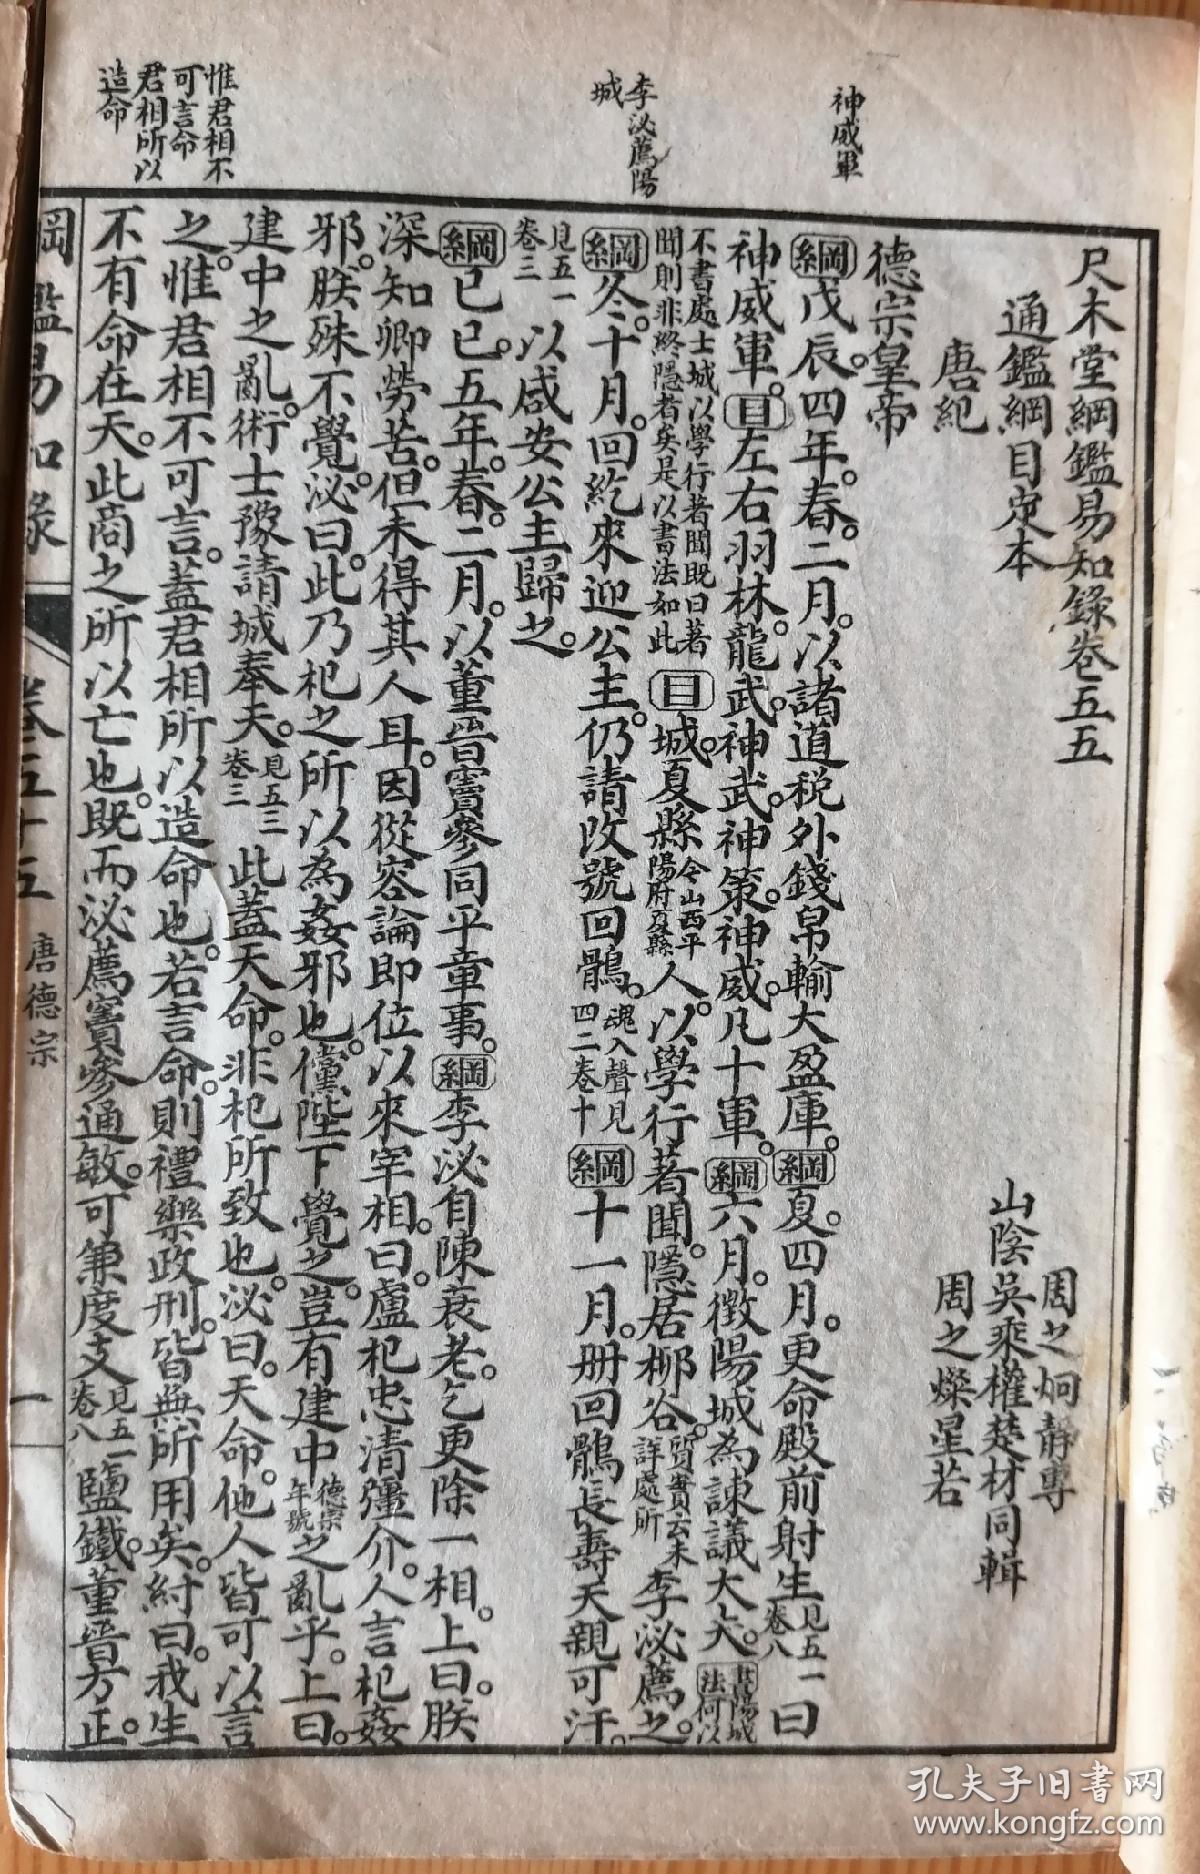 神威軍
李泌薦陽
城
惟君相不
可言命
君相所以
造命
尺木堂綱鑑易知錄卷五五
通鑑綱目定本
周之炯靜專
山陰吳乘權楚材同輯
周之燦星若
唐紀
德宗皇帝
綱戊辰四年春二月以諸道稅外錢帛輸大盈庫綱夏四月更命殿前射生見五一卷八曰
神威軍目左右羽林龍武神武神策神威凡十軍綱六月徵陽城為諫議大夫書陽城法何以
不書處士城以學行著聞既曰著聞則非終隱者矣是以書法如此目城夏縣今山西平陽府夏縣人以學行著聞隱居柳谷質實云未詳處所李泌薦之
綱冬十月回紇來迎公主仍請改號回鶻魂入聲見四二卷十綱十一月冊回鶻長壽天親可汗
見五一卷三以咸安公主歸之
綱己巳五年春二月以董晉竇參同平章事綱李泌自陳衰老乞更除一相上曰朕
深知卿勞苦但未得其人耳因從容論即位以來宰相曰盧杞忠清彊介人言杞姦
邪朕殊不覺泌曰此乃杞之所以為姦邪也儻陛下覺之豈有建中德宗年號之亂乎上曰
建中之亂術士豫請城奉天見五三卷三此蓋天命非杞所致也泌曰天命他人皆可以言
之惟君相不可言蓋君相所以造命也若言命則禮樂政刑皆無所用矣紂曰我生
不有命在天此商之所以亡也既而泌薦竇參通敏可兼度支見五一卷八鹽鐵董晉方正
綱鑑易知錄
卷五十五
唐德宗
一
孔夫子旧书网
www.kongfz.com